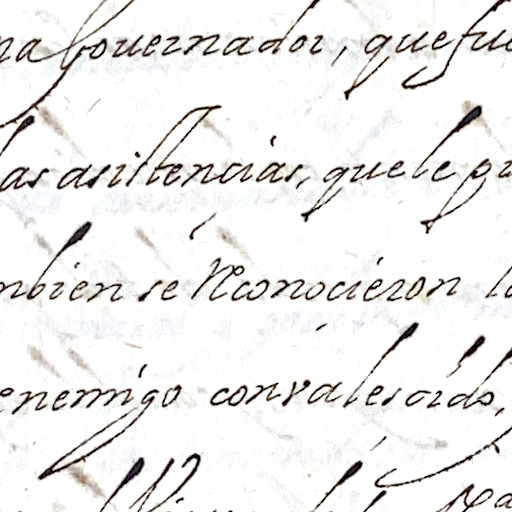 na Gouernador, que fue
las asistencias, que le pu
mbien se Reconocieron lo
enemigo convalesçido,